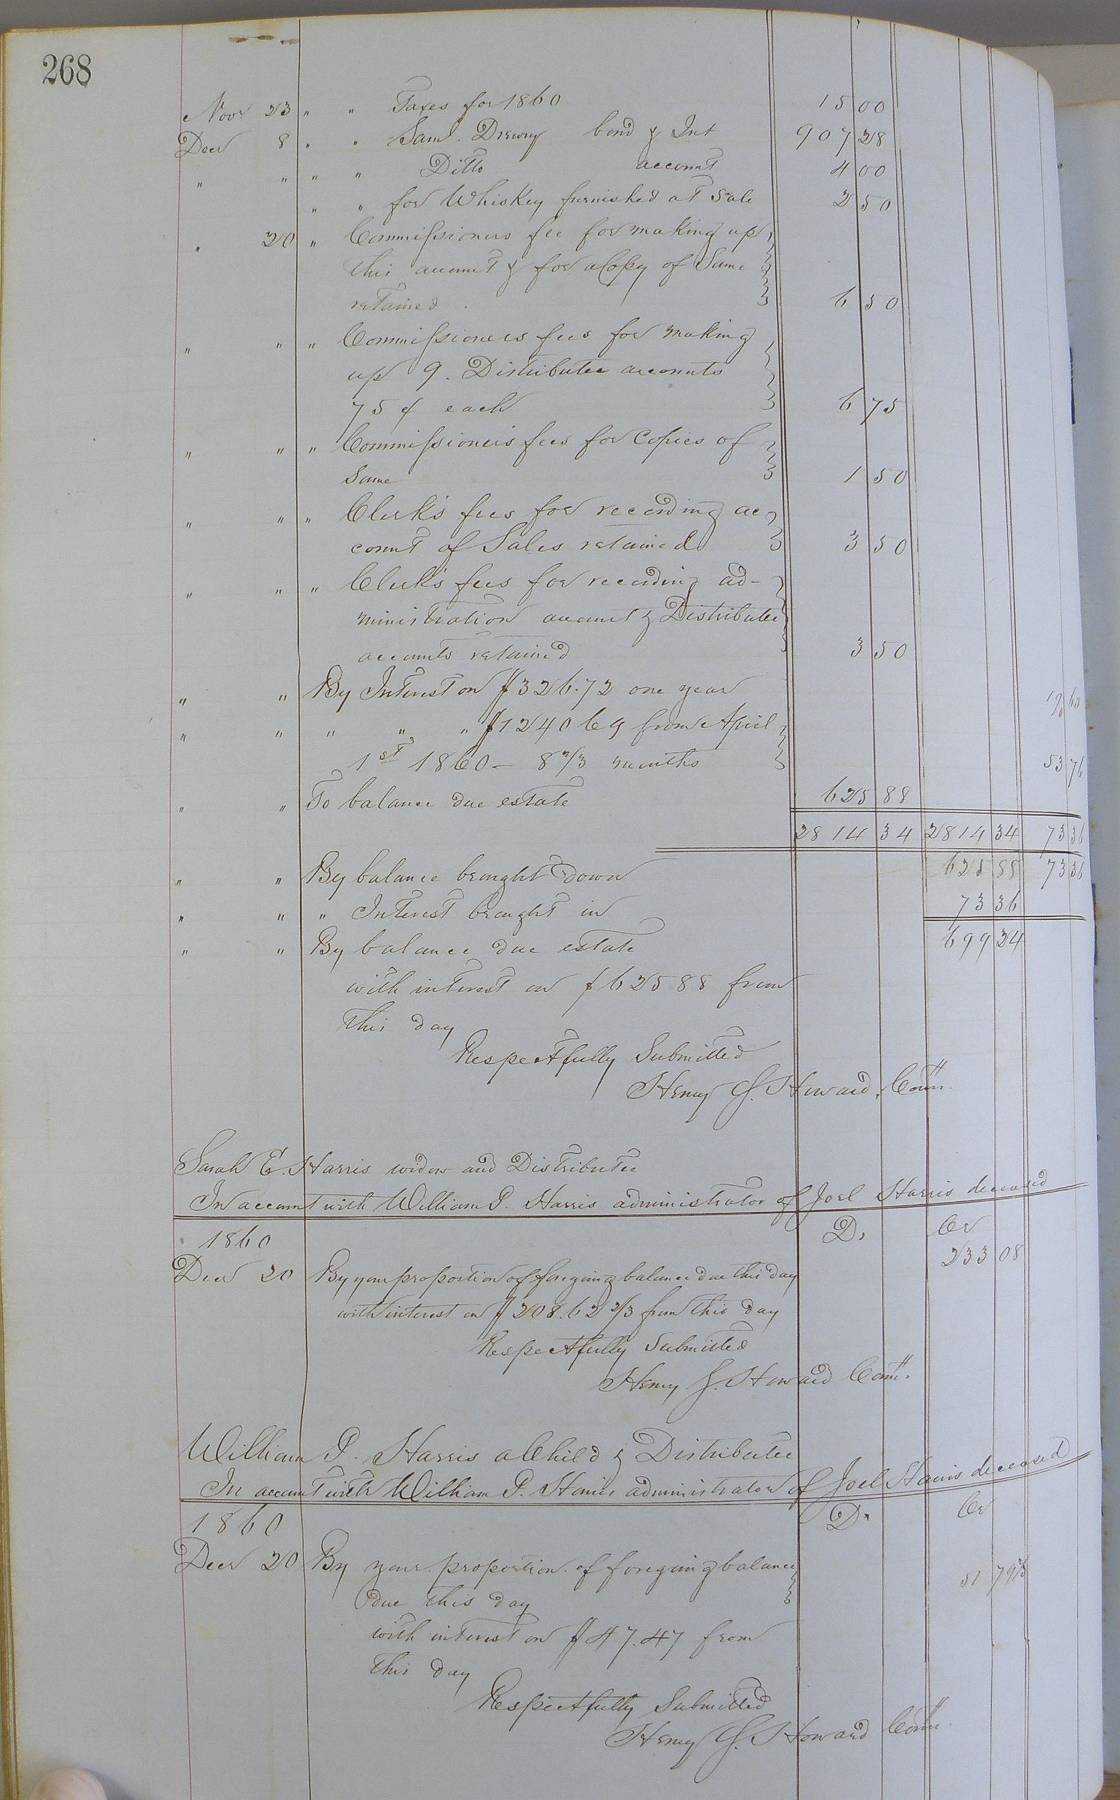 268
Novr 23 " " Taxes for 1860 15 00
Decr 8 " " Saml. Drewry bond & Int 907 28
" " " " Ditto account 4 00
" " for Whiskey furnished at Sale 2 50
" 20 " Commissioners fee for making up
this account & for a Copy of Same
retained 6 50
" " " Commissioners fees for making
up 9. Distributee accounts
75 ¢ each 6 75
" " " Commissioner's fees for Copies of
Same 1 50
" " " Clerk's fees for recording ac
count of Sales retained 3 50
" " " Clerk's fees for recording ad-
ministration account & Distributee
accounts retained 3 50
" " By Interest on $326.72 one year 19 60
" " " " " $1240 69 from April
1st 1860 — 8 2/3 months 53 76
" " To balance due estate 625 88
2814 34 2814 34 73 36
" " By balance brought down 625 88 73 36
" " " Interest brought in 73 36
" " By balance due estate 699 24
with interest on $625 88 from
this day
Respectfully Submitted
Henry G. Howard, Comr.
Sarah E. Harris widow and Distributee
In account with William P. Harris administrator of Joel Harris deceased
1860 Dr Cr
Decr 20 By your proportion of foregoing balance due this day 233 08
with interest on $208.62 2/3 from this day
Respectfully Submitted
Henry G. Howard Comr.
William P. Harris a Child & Distributee
In account with William P. Harris administrator of Joel Harris deceased
1860 Dr Cr
Decr 20 By your proportion of foregoing balance
due this day 51 79
with interest on $47.47 from
this day
Respectfully Submitted
Henry G. Howard Comr.